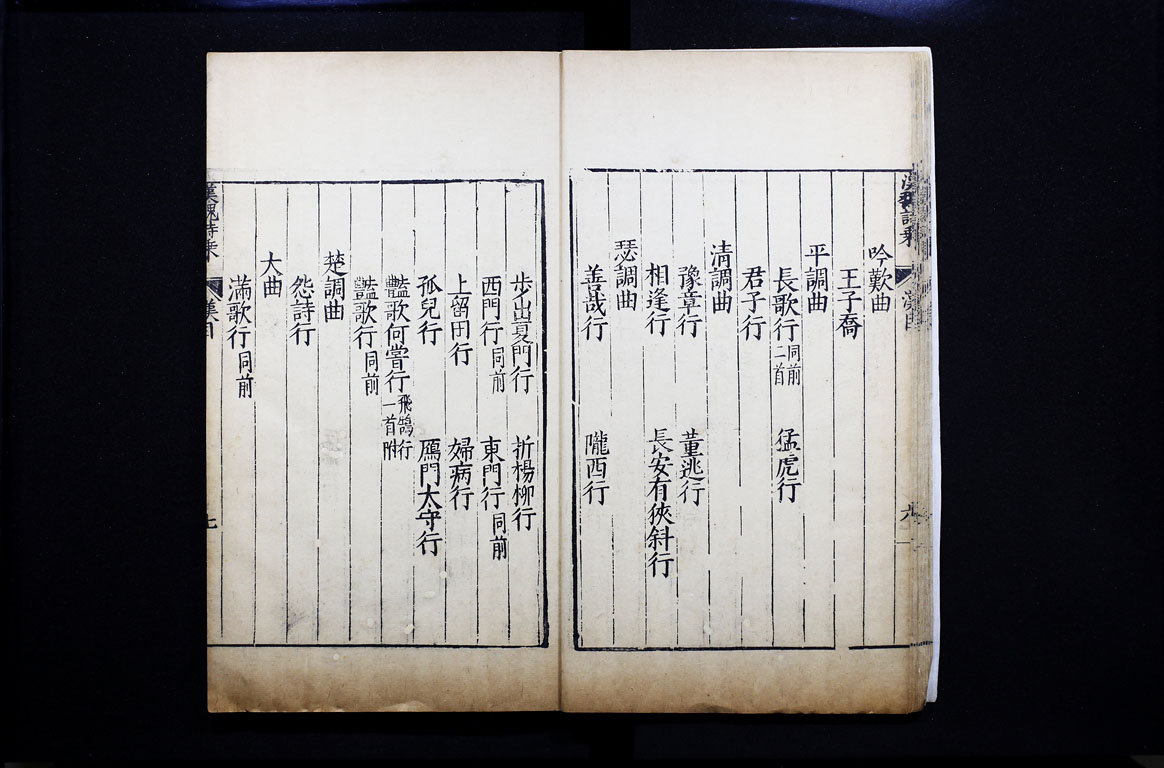 吟歎曲
王子喬
平調曲
長歌行 同前二首 猛虎行
君子行
清調曲
豫章行 董逃行
相逢行 長安有狹斜行
瑟調曲
善哉行 隴西行
步出夏門行 折楊柳行
西門行 同前 東門行 同前
上留田行 婦病行
孤兒行 鴈門太守行
豔歌何嘗行 飛鵠行一首附
豔歌行 同前
楚調曲
怨詩行
大曲
滿歌行 同前
漢魏詩乘 漢目 七